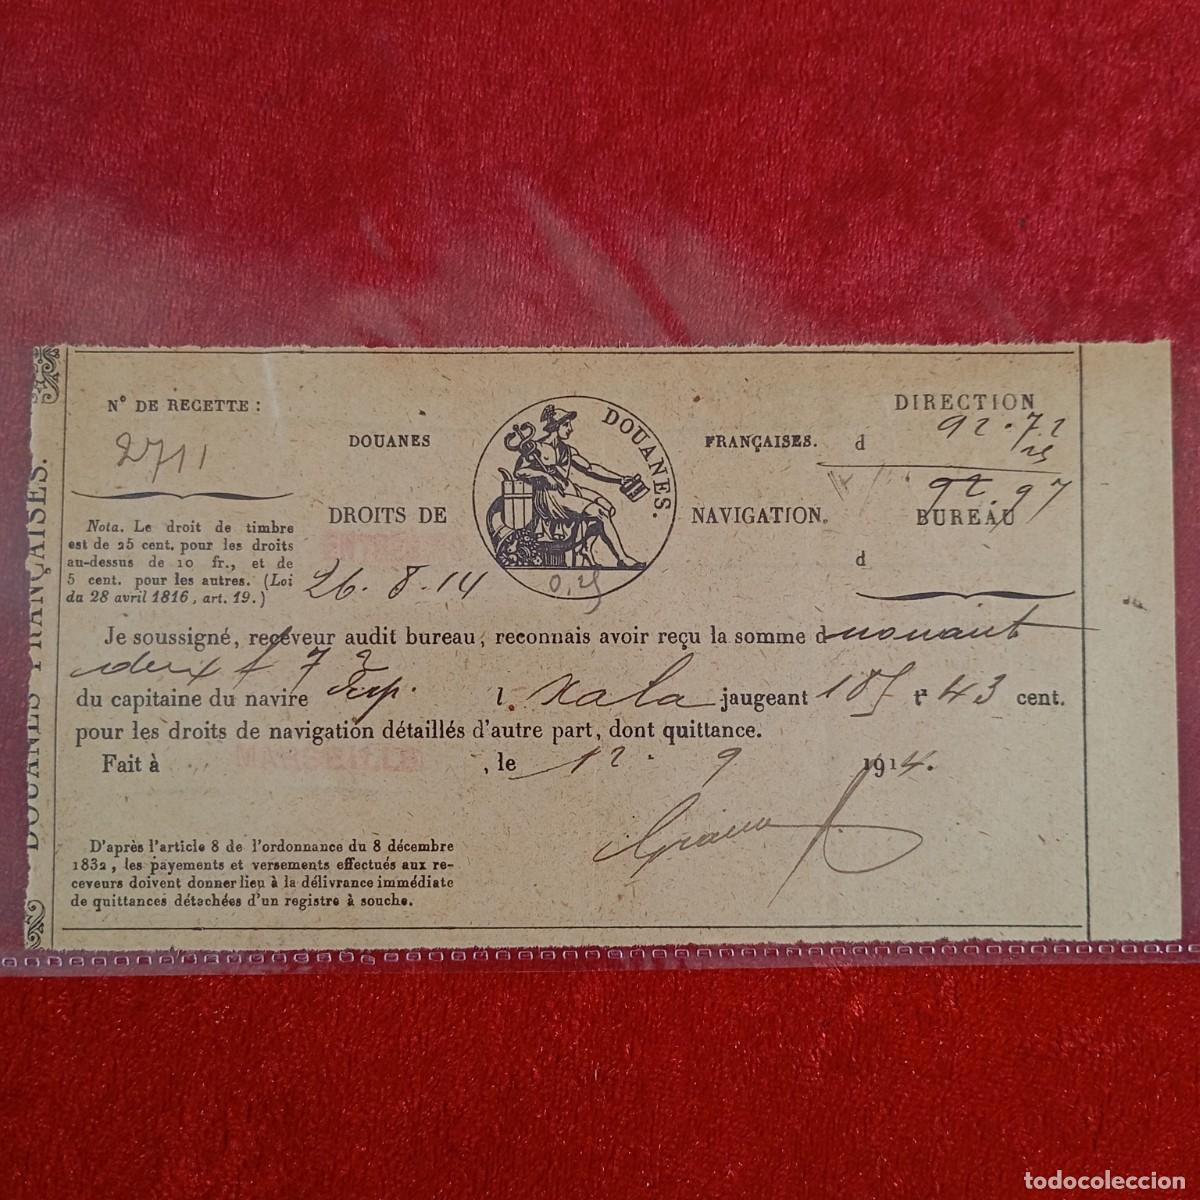 DOUANES FRANÇAISES.
N° DE RECETTE :
2711
Nota. Le droit de timbre
est de 25 cent. pour les droits
au-dessus de 10 fr., et de
5 cent. pour les autres. (Loi
du 28 avril 1816, art. 19.)
DOUANES
FRANÇAISES.
DOUANES.
0,25
DROITS DE
NAVIGATION.
26.8.14
DIRECTION
d 92.72
25
92.97
BUREAU
d
Je soussigné, receveur audit bureau, reconnais avoir reçu la somme d
deux f 72
du capitaine du navire Esp. jaugeant 185 tx 43 cent.
pour les droits de navigation détaillés d'autre part, dont quittance.
Fait à MARSEILLE, le 12.9 1914.
D'après l'article 8 de l'ordonnance du 8 décembre
1832, les payements et versements effectués aux re-
ceveurs doivent donner lieu à la délivrance immédiate
de quittances détachées d'un registre à souche.
todocoleccion